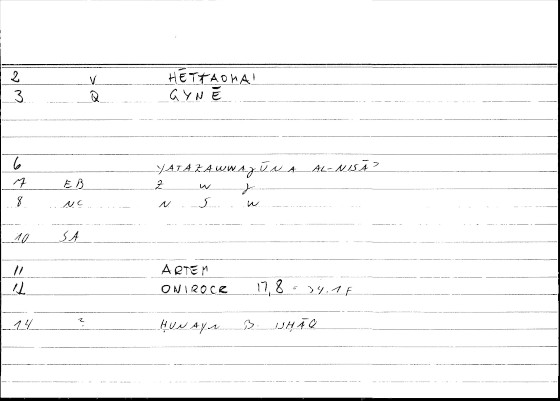 2 V HĒTTAOMAI
3 Q GYNĒ
6 YATAZAWWAǦŪNA AL-NISĀʾ
7 EB Z W Ǧ
8 NC N S W
10 SA
11 ARTEM
12 ONIROCR 17,8 = 34.1F
14 ? ḤUNAYN B. ISḤĀQ